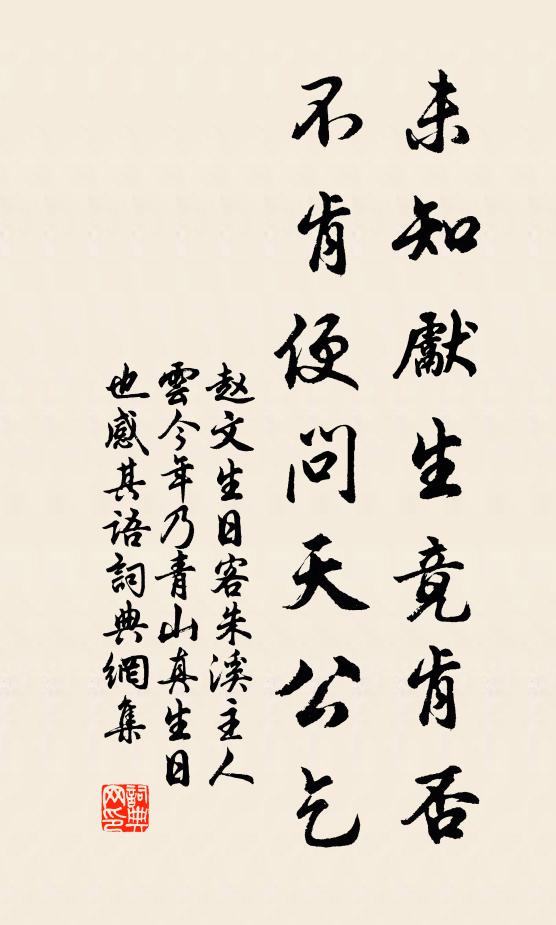 未知獻生竟肯否
不肯便問天公乞
赵文生日客朱溪主人
雲今年乃青山真生日
也感其語詞典網集
詞典网印